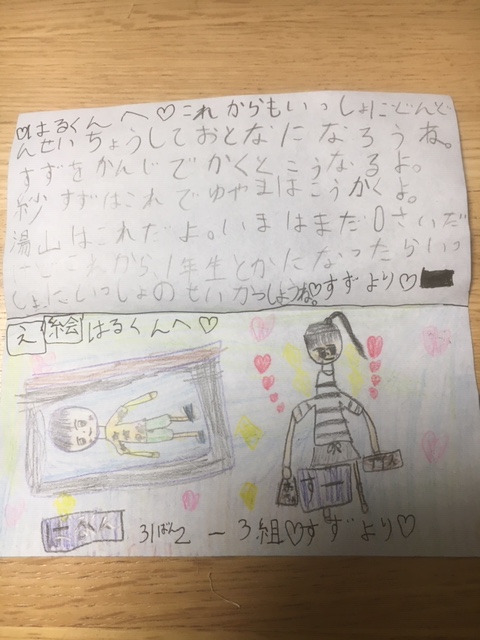 ♡はるくんへ♡これからもいっしょにどんど
んせいちょうしておとなになろうね。
すずをかんじでかくとこうなるよ。
紗 すずはこれでゆやまはこうかくよ。
湯山はこれだよ。いまはまだ0さいだ
けどこれから、1年生とかになったらいっ
しょにいっしょのせいかつしようね。♡すずより♡
え 絵 はるくんへ♡
すー
31ばん2ー3組♡すずより♡